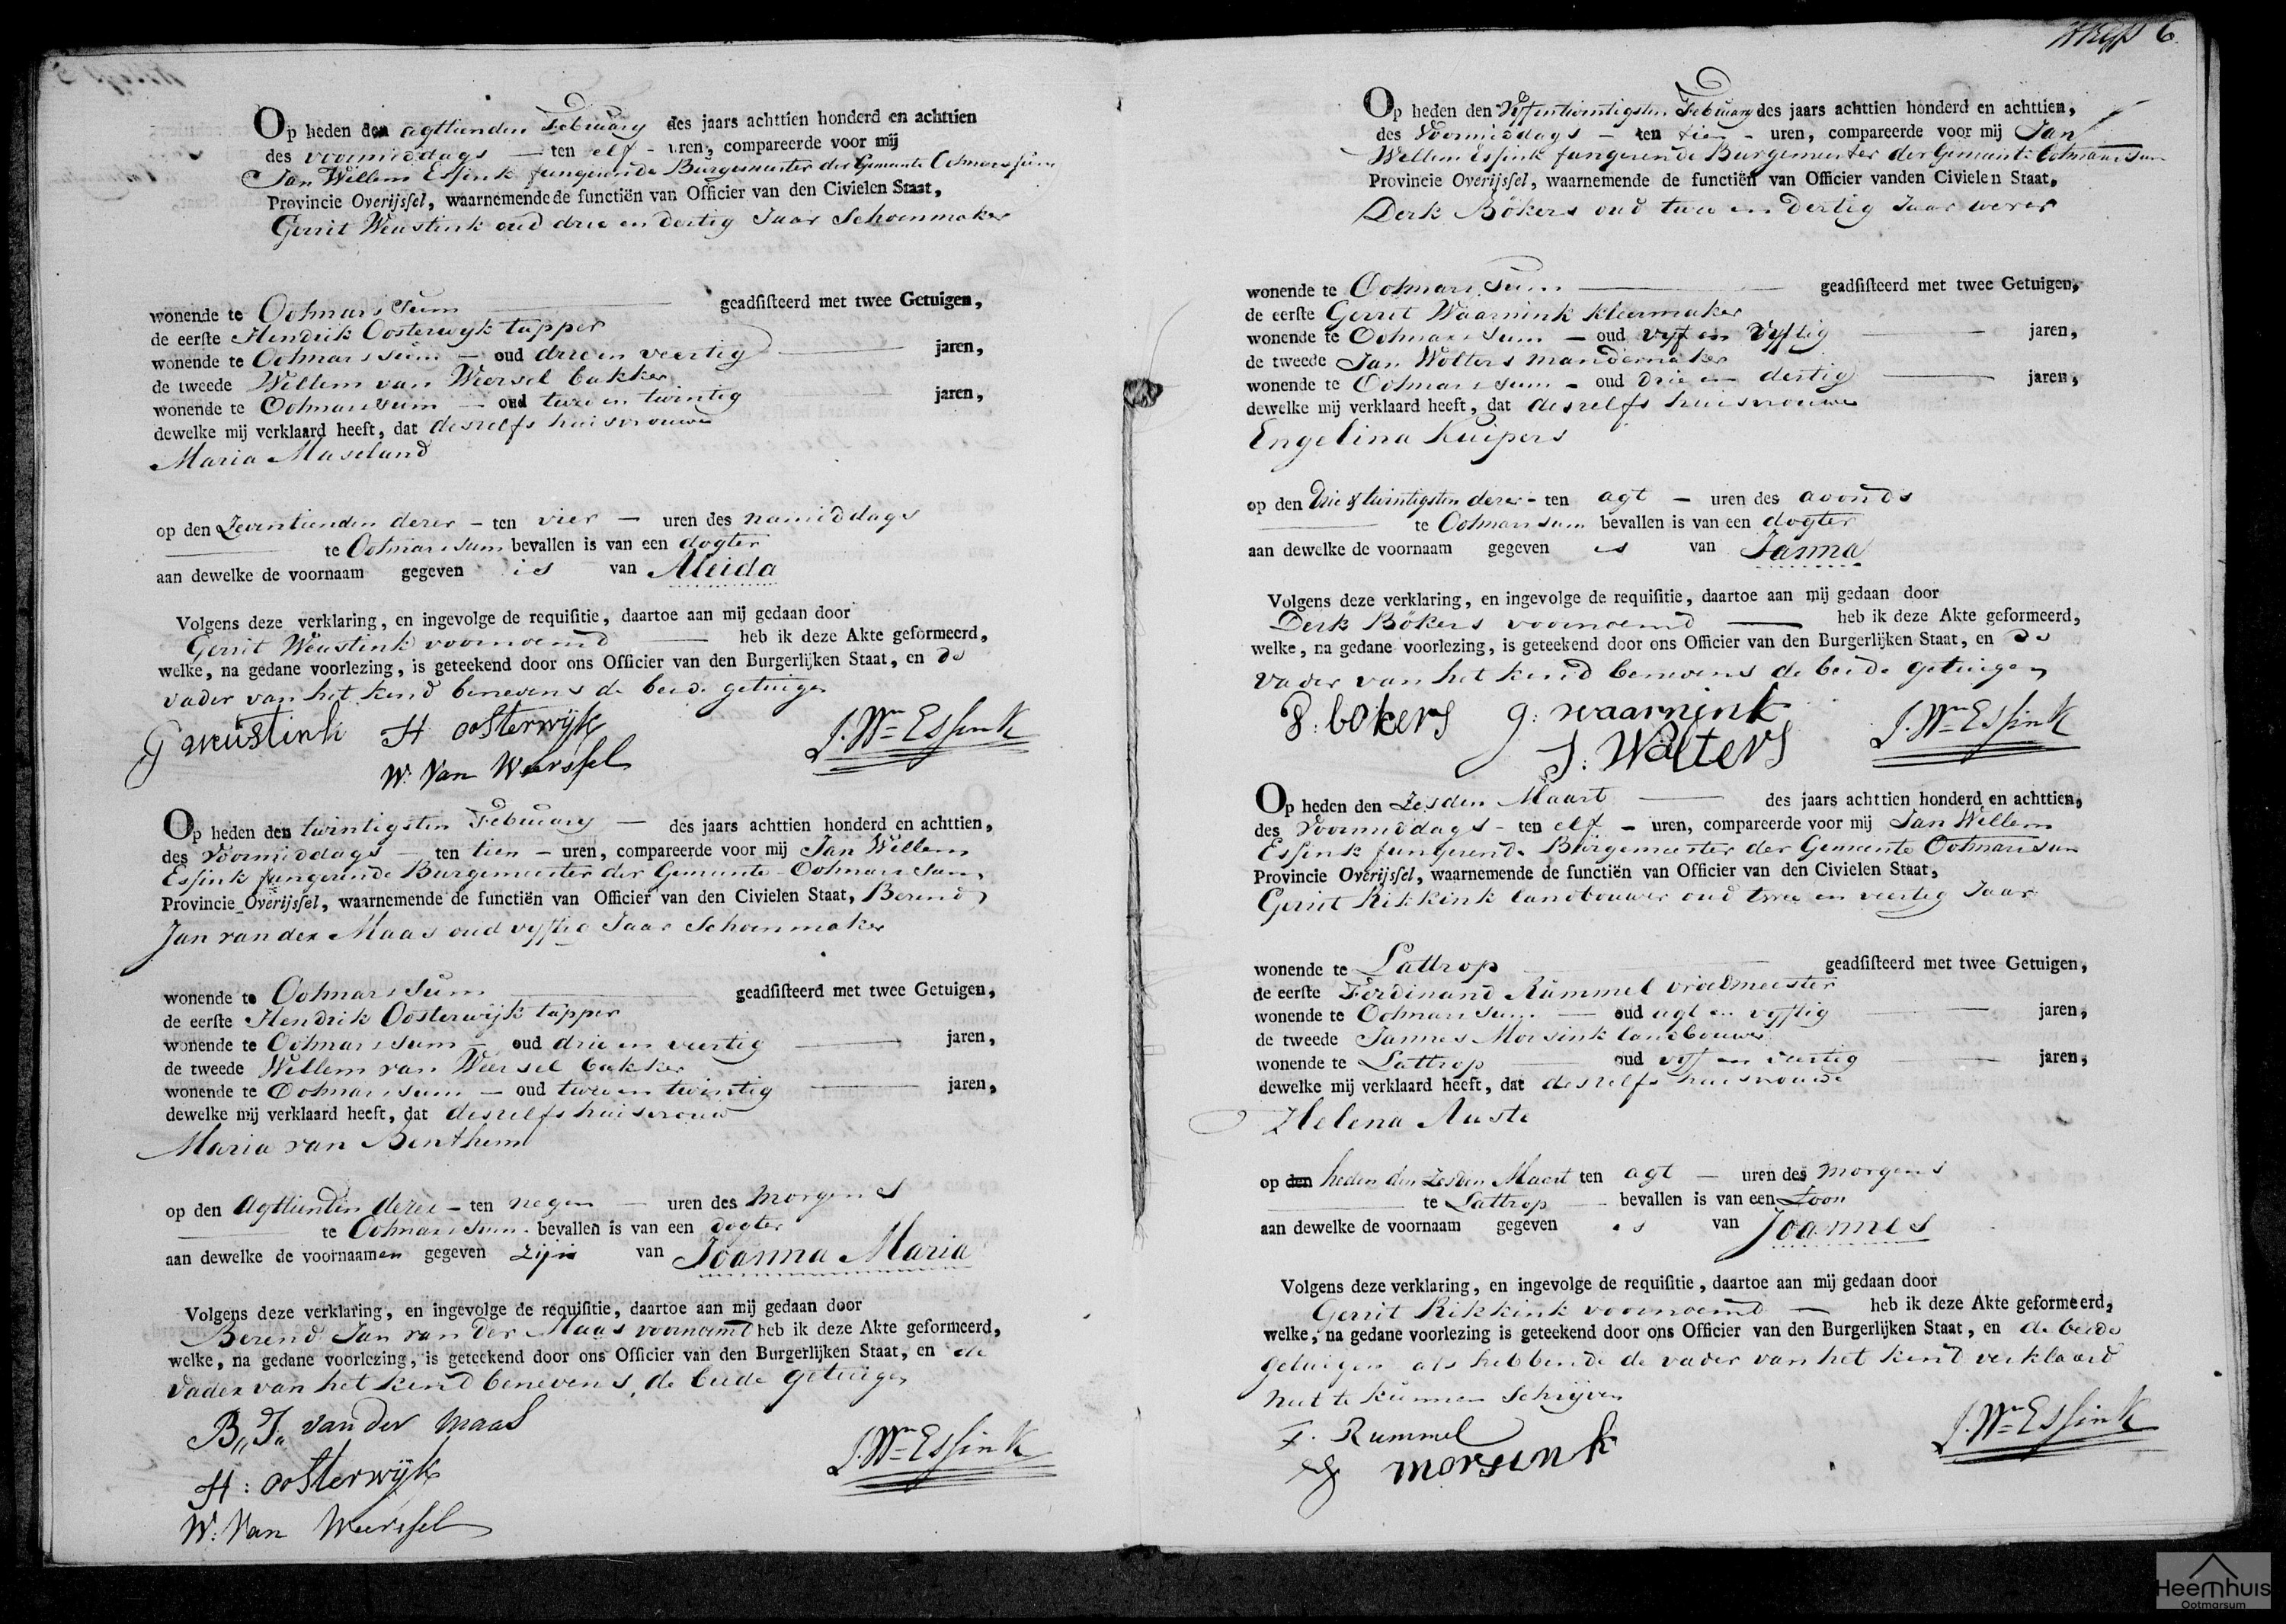 Op heden den agttienden February des jaars achttien honderd en achttien
des voormiddags — ten elf - uren, compareerde voor mij
Jan Willem Essink fungerende Burgemeester der Gemeente Ootmarssum
Provincie Overijssel, waarnemende de functiën van Officier van den Civielen Staat,
Gerrit Weustink oud drie en dertig Jaar Schoenmaker
wonende te Ootmarssum — geadsisteerd met twee Getuigen,
de eerste Hendrik Oosterwyk tapper
wonende te Ootmarssum — oud drie en veertig — jaren,
de tweede Willem van Weersel bakker
wonende te Ootmarssum — oud twee en twintig — jaren,
dewelke mij verklaard heeft, dat deszelfs huisvrouwe
Maria Maseland
op den Zeventienden dezer - ten vier — uren des namiddags
— te Ootmarssum bevallen is van een dogter
aan dewelke de voornaam gegeven is van Aleida
Volgens deze verklaring, en ingevolge de requisitie, daartoe aan mij gedaan door
Gerrit Weustink voornoemd — heb ik deze Akte geformeerd,
welke, na gedane voorlezing, is geteekend door ons Officier van den Burgerlijken Staat, en de
vader van het kind benevens de beide getuigen
G weustink H oosterwijk J. Wm Essink
W. Van Weerssel
Op heden den twintigsten February — des jaars achttien honderd en achttien,
des Voormiddags — ten tien - uren, compareerde voor mij Jan Willem
Essink fungerende Burgemeester der Gemeente Ootmarssum,
Provincie Overijssel, waarnemende de functiën van Officier van den Civielen Staat, Berend
Jan van der Maas oud vyftig Jaar Schoenmaker
wonende te Ootmarssum — geadsisteerd met twee Getuigen,
de eerste Hendrik Oosterwijk tapper
wonende te Ootmarssum — oud drie en veertig — jaren,
de tweede Willem van Weersel bakker
wonende te Ootmarssum — oud twee en twintig — jaren,
dewelke mij verklaard heeft, dat deszelfs huisvrouw
Maria van Benthem
op den Agttienden dezer - ten negen — uren des morgens
— te Ootmarssum bevallen is van een dogter
aan dewelke de voornaamen gegeven zijn van Joanna Maria
Volgens deze verklaring, en ingevolge de requisitie, daartoe aan mij gedaan door
Berend Jan van der Maas voornoemd heb ik deze Akte geformeerd,
welke, na gedane voorlezing, is geteekend door ons Officier van den Burgerlijken Staat, en de
Vader van het kind benevens de beide getuigen
B,, J,, van der maas
J. Wm Essink
H: oosterwijk
W: Van Weerssel
6.
Op heden den Vyfentwintigsten February des jaars achttien honderd en achttien,
des Voormiddags — ten tien - uren, compareerde voor mij Jan
Willem Essink fungerende Burgemeester der Gemeente Ootmarssum
Provincie Overijssel, waarnemende de functiën van Officier vanden Civielen Staat,
Derk Bökers oud twee en dertig Jaar wever
wonende te Ootmarssum — geadsisteerd met twee Getuigen,
de eerste Gerrit Waarnink kleermaker
wonende te Ootmarssum — oud vyf en vyftig — jaren,
de tweede Jan Wolters mandemaker
wonende te Ootmarssum - oud drie en dertig — jaren,
dewelke mij verklaard heeft, dat deszelfs huisvrouwe
Engelina Kuipers
op den Drie & twintigsten dezer - ten agt — uren des avonds
— te Ootmarssum bevallen is van een dogter
aan dewelke de voornaam gegeven is van Janna
Volgens deze verklaring, en ingevolge de requisitie, daartoe aan mij gedaan door
Derk Bökers voornoemd — heb ik deze Akte geformeerd,
welke, na gedane voorlezing, is geteekend door ons Officier van den Burgerlijken Staat, en de
Vader van het kind benevens de beide getuigen
D: bökers g: waarnink J. Wm Essink
J: Wolters
Op heden den Zesden Maart — des jaars achttien honderd en achttien,
des Voormiddags - ten elf - uren, compareerde voor mij Jan Willem
Essink fungerende Burgemeester der Gemeente Ootmarssum
Provincie Overijssel, waarnemende de functiën van Officier van den Civielen Staat,
Gerrit Kikkink landbouwer oud twee en veertig Jaar
wonende te Lattrop — geadsisteerd met twee Getuigen,
de eerste Ferdinand Rummel vroedmeester
wonende te Ootmarssum — oud agt en vyftig — jaren,
de tweede Jannes Morsink landbouwer
wonende te Lattrop — oud vyf en veertig — jaren,
dewelke mij verklaard heeft, dat deszelfs huisvrouwe
Helena Auste
op den heden den Zesden Maart ten agt — uren des morgens
— te Lattrop — bevallen is van een Zoon
aan dewelke de voornaam gegeven is van Joannes
Volgens deze verklaring, en ingevolge de requisitie, daartoe aan mij gedaan door
Gerrit Kikkink voornoemd — heb ik deze Akte geformeerd,
welke, na gedane voorlezing is geteekend door ons Officier van den Burgerlijken Staat, en de beide
getuigen als hebbende de vader van het kind verklaard
niet te kunnen Schrijven
F. Rummel J. Wm Essink
morsink
Heemhuis
Ootmarsum